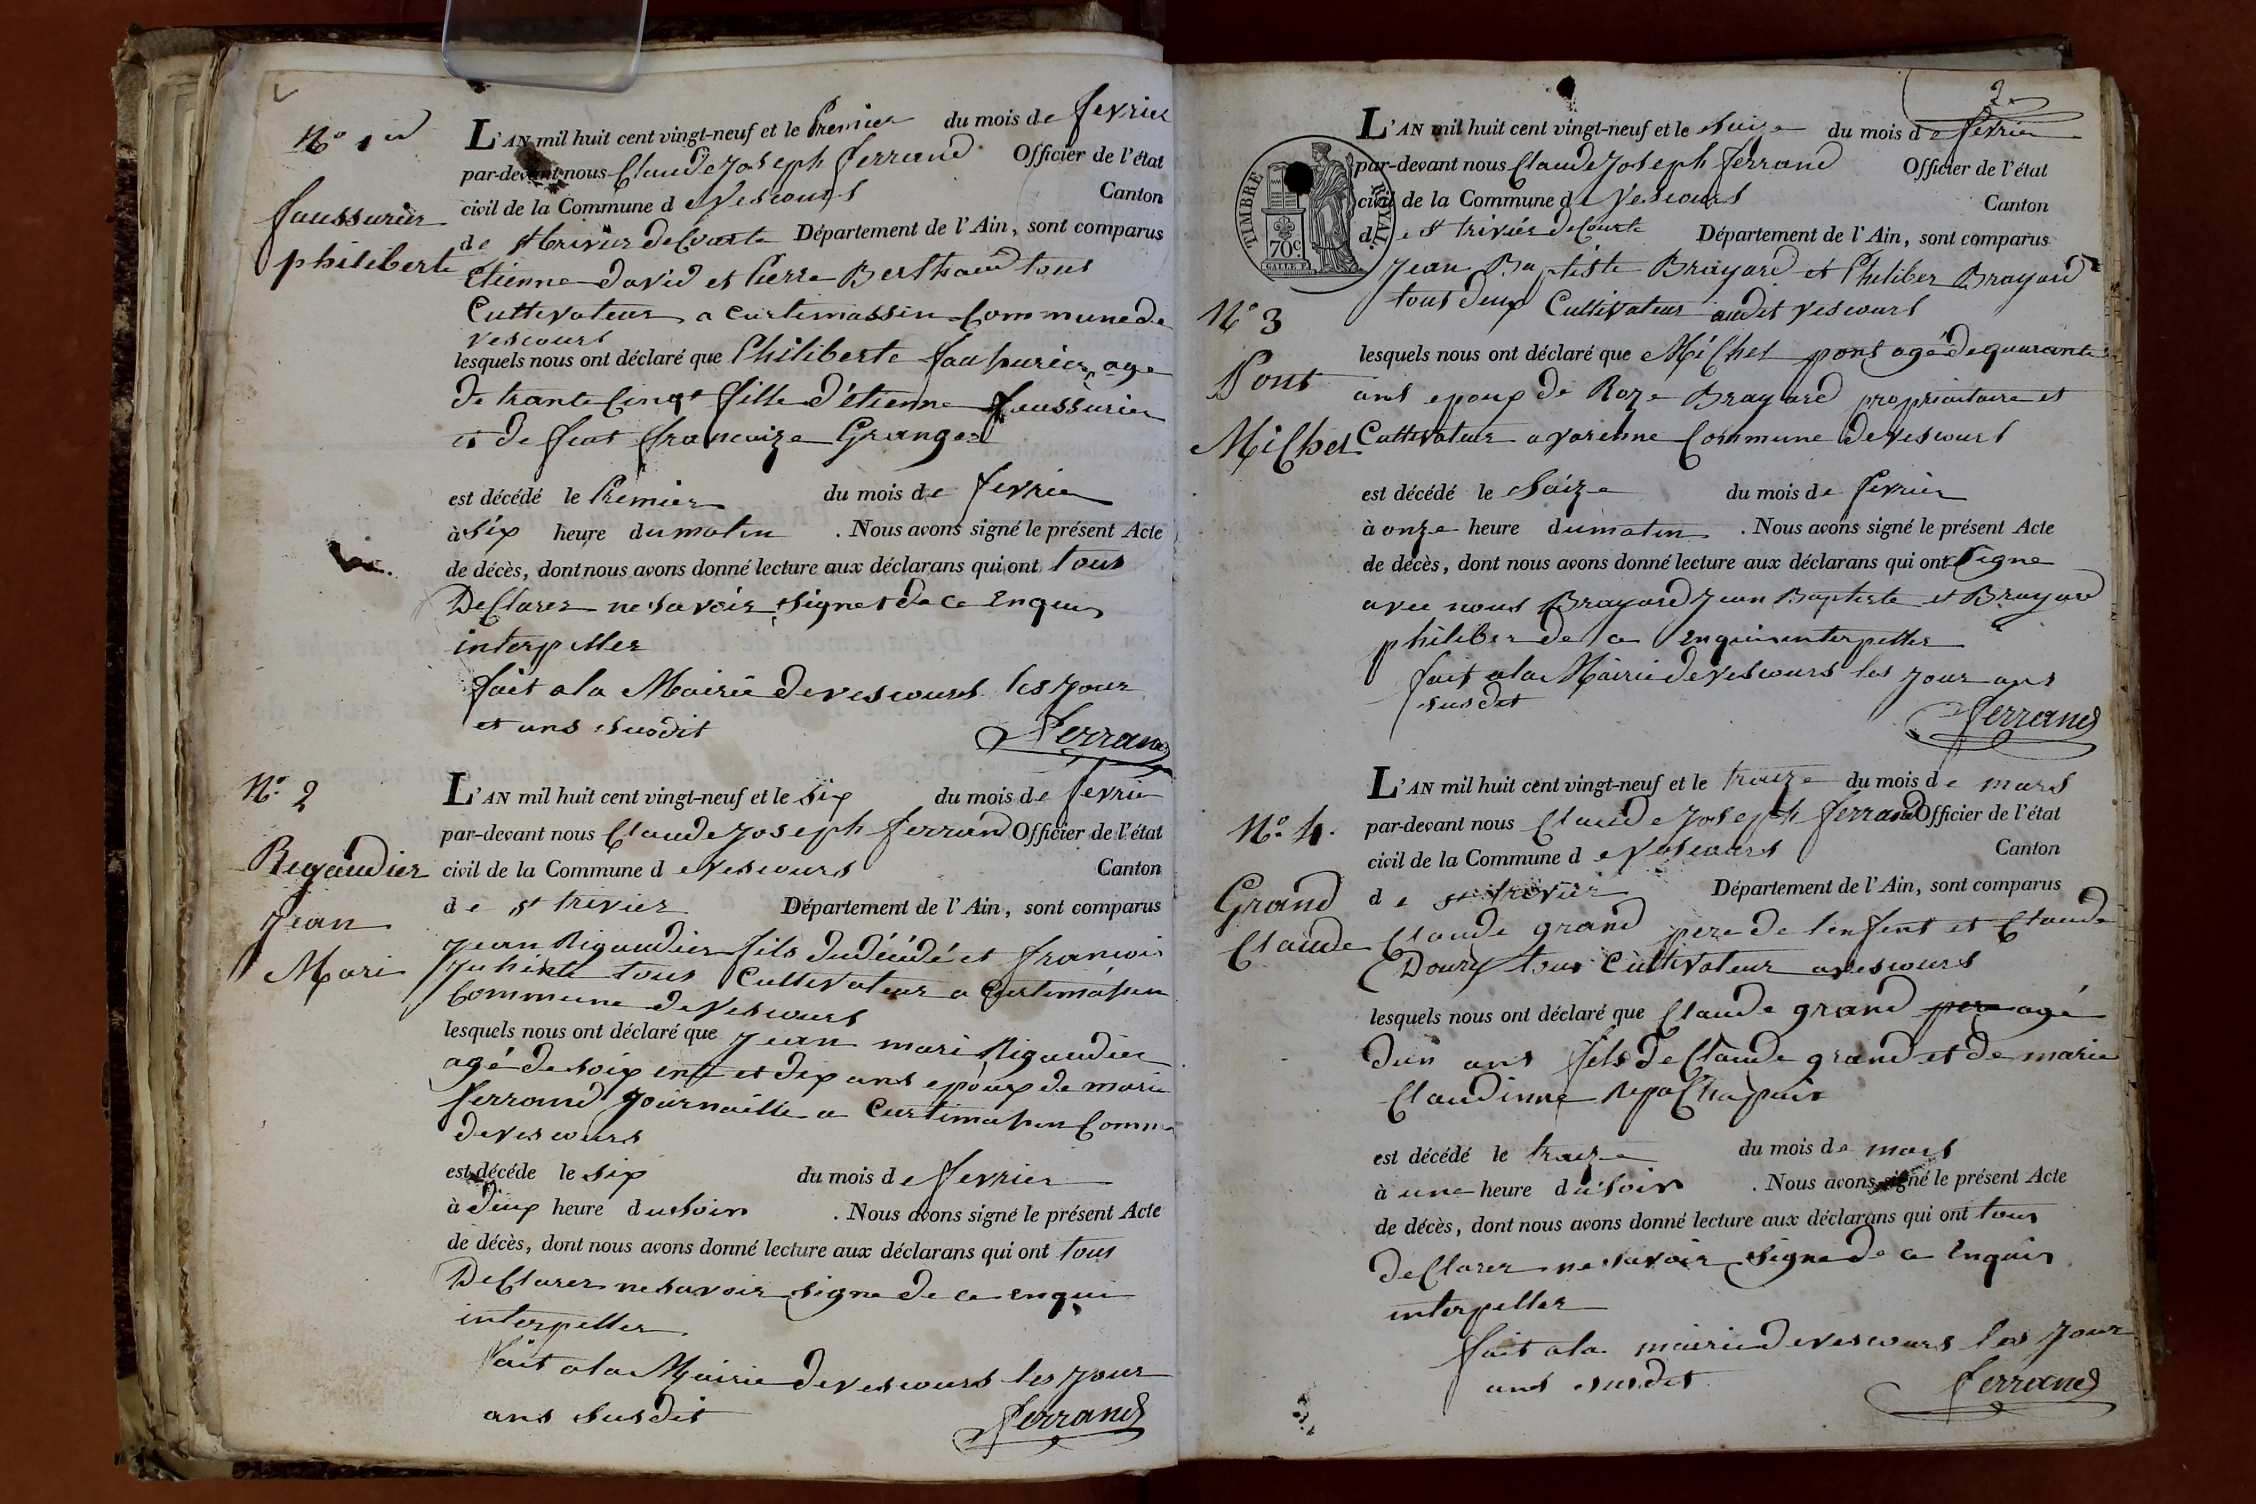 N° 1er
faussurier
philiberte
L'AN mil huit cent vingt-neuf et le Premier du mois de fevrier
par-devant nous Claude Joseph ferrand Officier de l'état
civil de la Commune de Vescours Canton
de st trivier de Courte Département de l'Ain, sont comparus
Etienne david et Pierre Berthaud tous
Cultivateur a curtimassin Commune de
vescours
lesquels nous ont déclaré que Philiberte faussurier age
de trante Cinqt fille d'étienne faussurier
et de feut francoize Granger
est décédé le Premier du mois de fevrier
à six heure du matin . Nous avons signé le présent Acte
de décès, dont nous avons donné lecture aux déclarans qui ont tous
De Clarer ne savoir signer de ce Enquis
interpeller
fait a la Mairie de vescours les jour
et ans susdit
ferrand
N° 2
Regaudier
jean
Mari
L'AN mil huit cent vingt-neuf et le six du mois de fevrier
par-devant nous Claude Joseph ferrand Officier de l'état
civil de la Commune de Vescours Canton
de st trivier Département de l'Ain, sont comparus
jean Rigaudier fils du décédé et francois
tous Cultivateur a Curtimassin
Commune de Vescours
lesquels nous ont déclaré que jean mari Rigaudier
agé de soix ente et dix ans epoux de marie
ferrand journaille a Curtimassin Comm
de vescours
est décédé le six du mois de fevrier
à deux heure du soir . Nous avons signé le présent Acte
de décès, dont nous avons donné lecture aux déclarans qui ont tous
De Clarer ne savoir signe de ce enqui
interpeller
fait a la Mairie de vescours les jour
ans susdit
ferrand
2
TIMBRE ROYAL
70c
L'AN mil huit cent vingt-neuf et le saize du mois de fevrier
par-devant nous Claude Joseph ferrand Officier de l'état
civil de la Commune de Vescours Canton
de st trivier de Courte Département de l'Ain, sont comparus
jean Baptiste Brayard et Philiber Brayard
tous deux Cultivateur audit vescours
N° 3
Pont
Michel
lesquels nous ont déclaré que Michel pont agé de quarante
ans epoux de Roze Brayard propriaitaire et
Cultivateur a varenne Commune de vescours
est décédé le saize du mois de fevrier
à onze heure du matin . Nous avons signé le présent Acte
de décès, dont nous avons donné lecture aux déclarans qui ont signe
avec nous Brayard jean Baptiste et Brayard
philiber de ce Enquis interpeller
fait a la Mairie de vescours les jour ans
susdit
ferrand
N° 4.
Grand
Claude
L'AN mil huit cent vingt-neuf et le traize du mois de mars
par-devant nous Claude Joseph ferrand Officier de l'état
civil de la Commune de Vescours Canton
de st trivier Département de l'Ain, sont comparus
Claude grand pere de lenfent et Claude
Doury tous Cultivateur a vescours
lesquels nous ont déclaré que Claude grand pere agé
d'un ans fils de Claude grand et de marie
Claudinne
est décédé le traize du mois de mars
à une heure du soir . Nous avons signé le présent Acte
de décès, dont nous avons donné lecture aux déclarans qui ont tous
de Clarer ne savoir signe de ce Enquis
interpeller
fait a la mairie de vescours les jour
ans susdit
ferrand